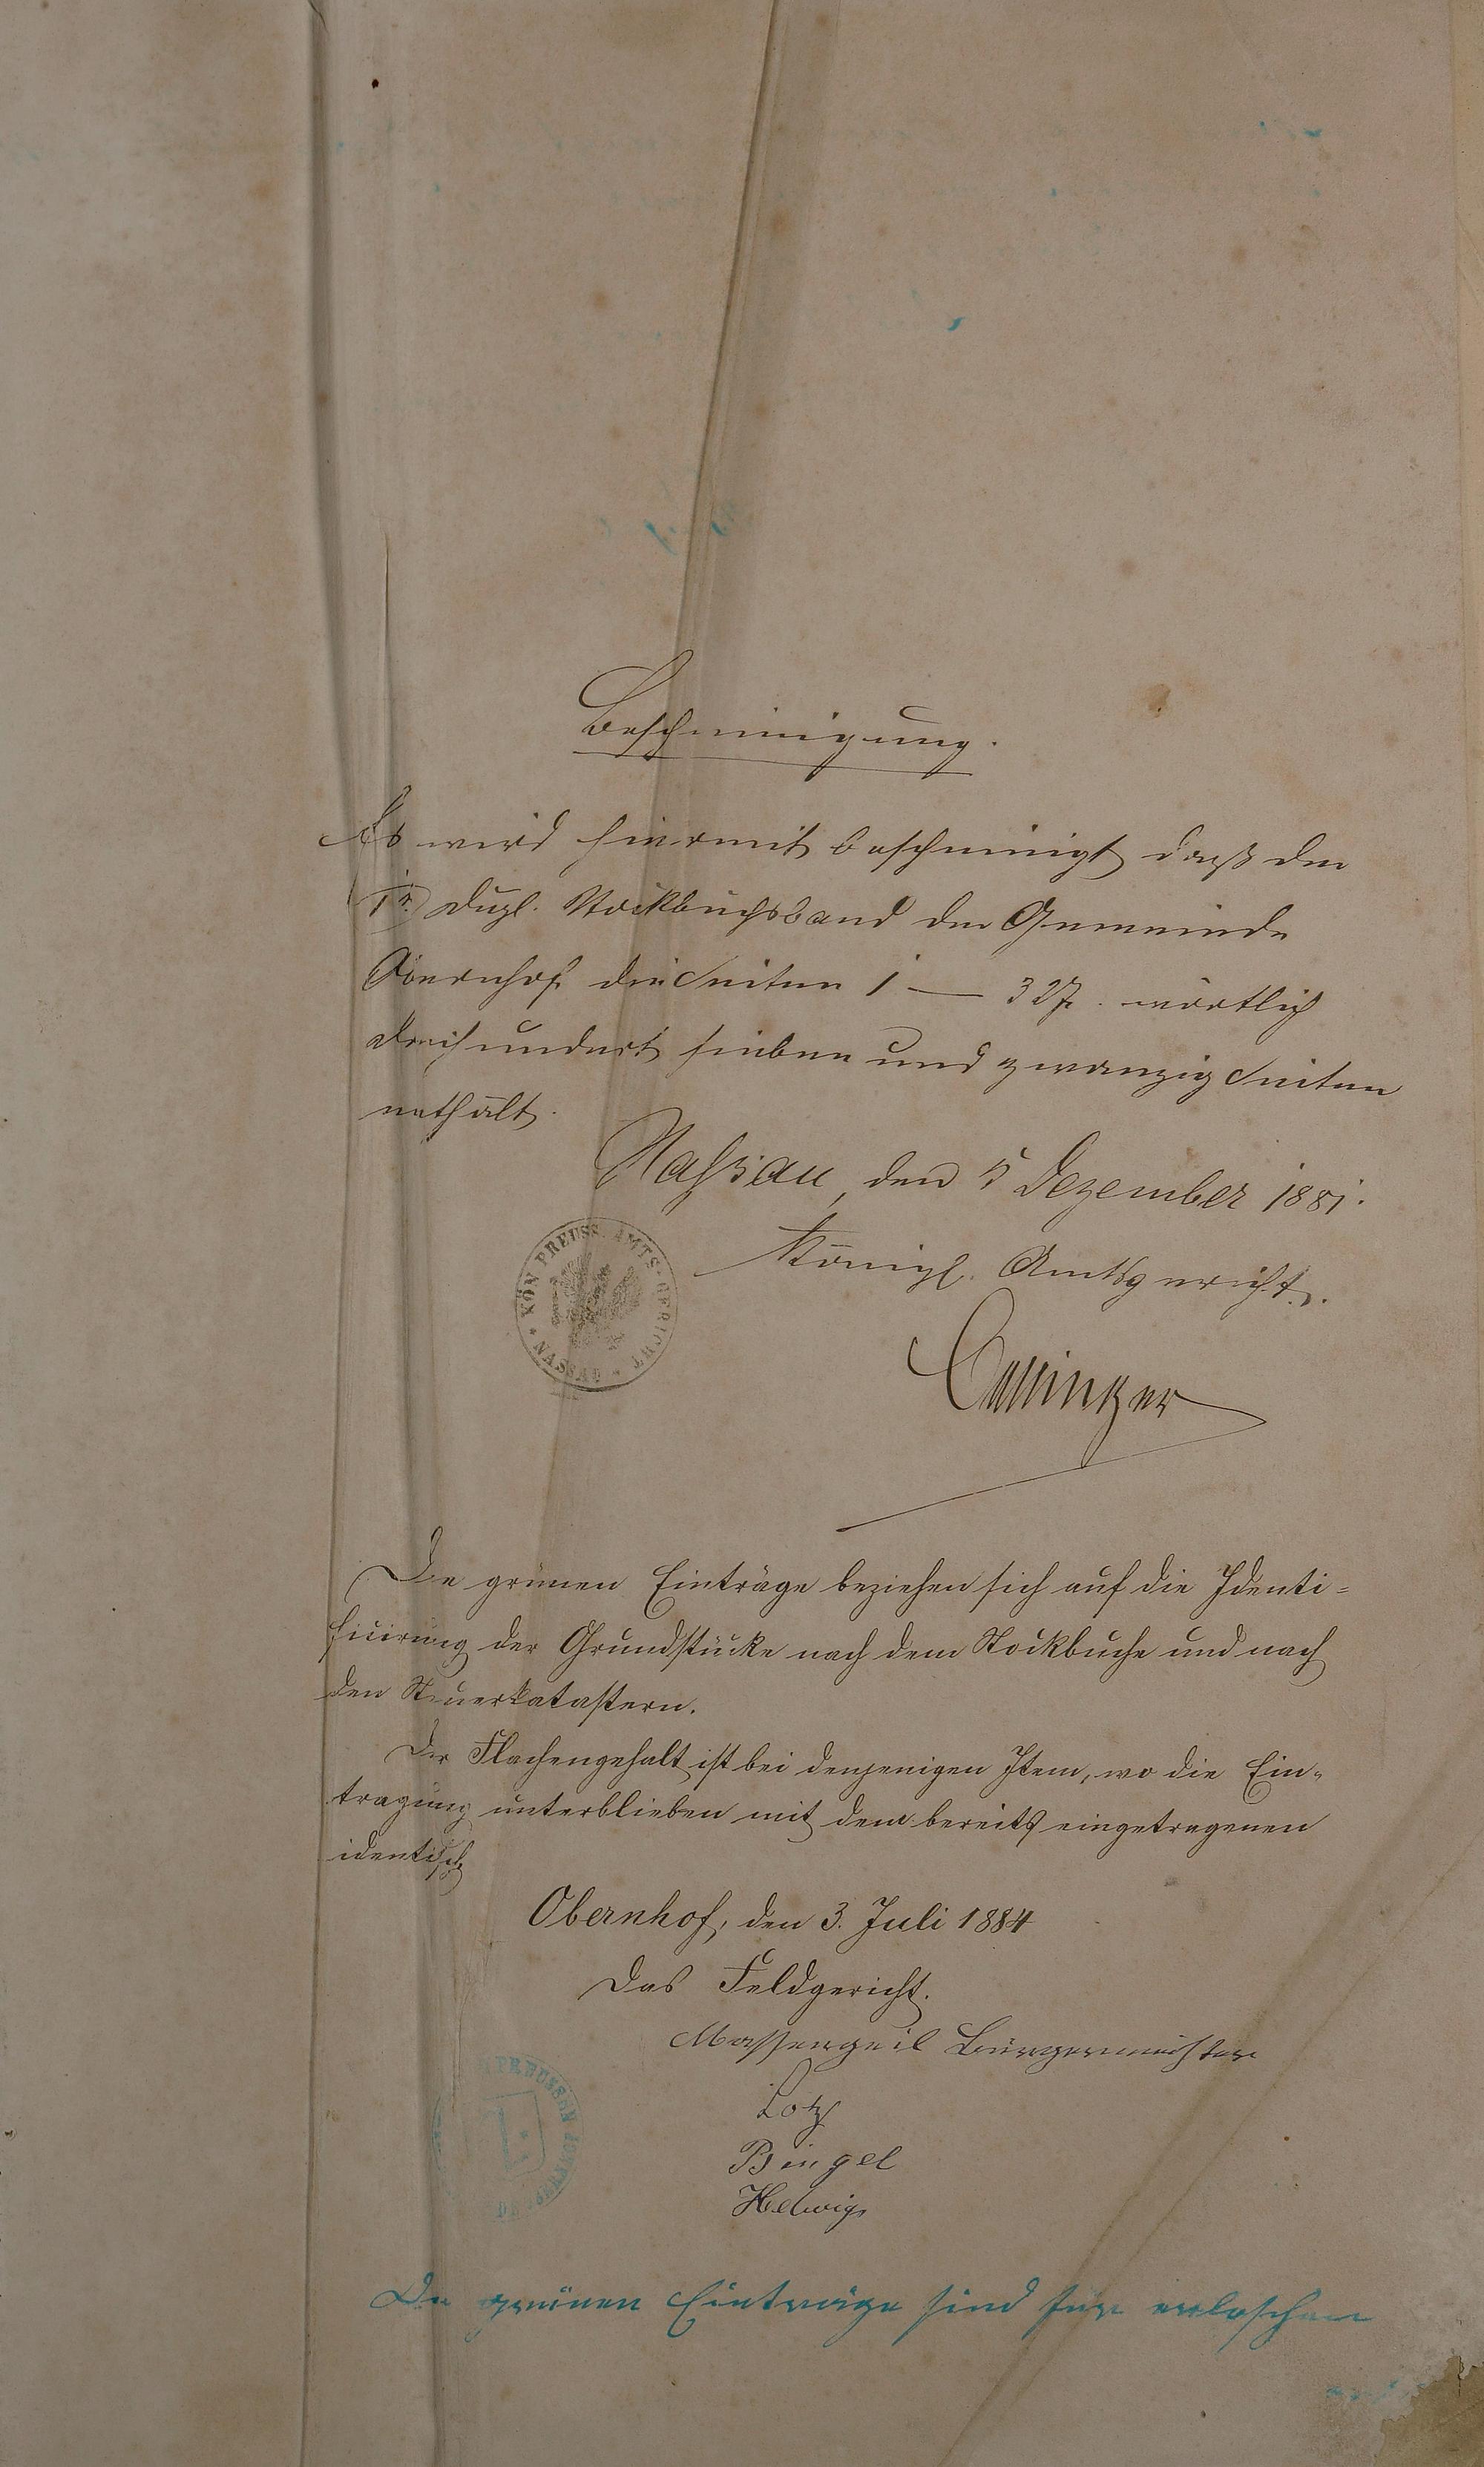 Bescheinigung.
Es wird hiermit bescheinigt daß der
1te Dupl. Stockbuchsband der Gemeinde
Obernhof die Seiten 1 — 327. wörtlich
dreihundert sieben und zwanzig Seiten
enthält.
Nassau, den 5 Dezember 1881.
Königl. Amtsgericht.
KÖN. PREUSS. AMTS-GERICHT * NASSAU *
Die grünen Einträge beziehen sich auf die Identi=
ficirung der Grundstücke nach dem Stockbuche und nach
den Steuerkatastern.
Der Flächengehalt ist bei denjenigen Item, wo die Ein=
tragung unterblieben mit dem bereits eingetragenen
identisch
Obernhof, den 3. Juli 1884
Das Feldgericht.
Massengeil Bürgermeister
Lotz
Bingel
Helwig
PREUSSEN
Die grünen Einträge sind hier erloschen